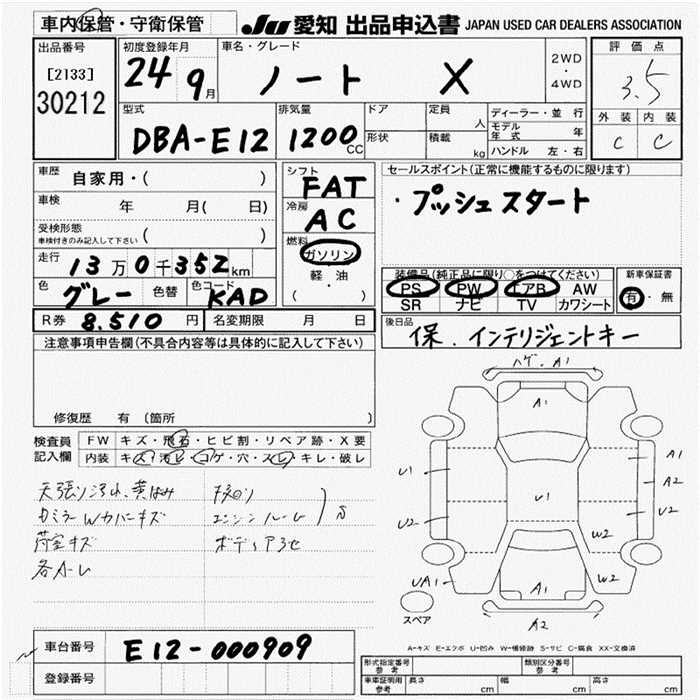 車内保管・守衛保管
JU 愛知 出品申込書 JAPAN USED CAR DEALERS ASSOCIATION
出品番号
[2133]
30212
初度登録年月
24 9月
車名・グレード
ノート X
2WD
・
4WD
評価点
3.5
外装 内装
C C
型式
DBA-E12
排気量
1200 CC
ドア
形状
定員
人
積載
kg
ディーラー・並行
モデル年式 年
ハンドル 左・右
車歴
自家用・( )
車検
年 月( 日)
受検形態
車検付きのみ記入して下さい ( )
走行
13万0千352km
色
グレー
色替
色コード
KAD
シフト
FAT
冷房
AC
燃料
ガソリン
軽・油
( )
セールスポイント(正常に機能するものに限ります)
・プッシュスタート
装備品(純正品に限り○をつけてください)
PS PW エアB AW
SR ナビ TV カワシート
新車保証書
有・無
R券 8.510 円
名変期限 月 日
後日品
保.インテリジェントキー
注意事項申告欄(不具合内容等は具体的に記入して下さい)
修復歴 有 (箇所 )
検査員
記入欄
FW キズ・飛石・ヒビ割・リペア跡・X要
内装 キズ・汚レ・コゲ・穴・スレ・キレ・破レ
天張り汚れ、黄ばみ
カミラーWカバーキズ
エンジンルーム
荷室キズ
各A-L
ハゲ.A1
A1
U1
U2
U1
A1
A2
U2
W2
W2
UA1
A1
A2
スペア
A-キズ E-エクボ U-凹み W-補修跡 S-サビ C-腐食 XX-交換済
車台番号 E12-000909
登録番号
形式指定番号
参考
類別区分番号
参考
車庫証明用
参考
長さ cm 幅 cm 高さ cm